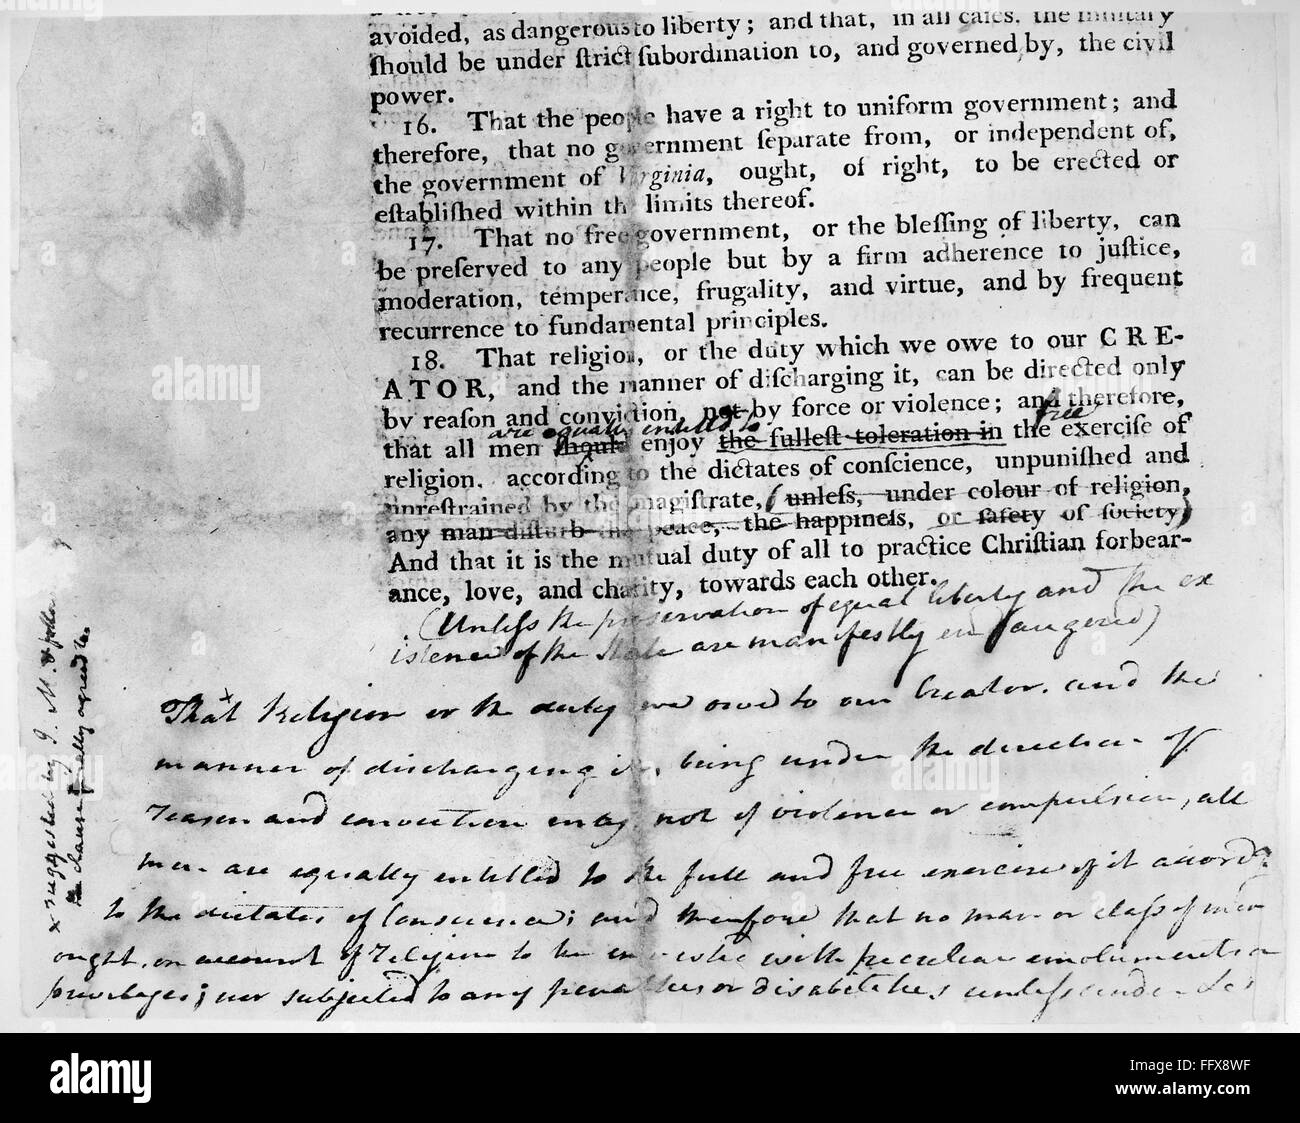 avoided, as dangerous to liberty; and that, in all caſes, the military
ſhould be under ſtrict ſubordination to, and governed by, the civil
power.
16. That the people have a right to uniform government; and
therefore, that no government ſeparate from, or independent of,
the government of Virginia, ought, of right, to be erected or
eſtabliſhed within the limits thereof.
17. That no free government, or the bleſſing of liberty, can
be preſerved to any people but by a firm adherence to juſtice,
moderation, temperance, frugality, and virtue, and by frequent
recurrence to fundamental principles.
18. That religion, or the duty which we owe to our CRE-
ATOR, and the manner of diſcharging it, can be directed only
by reaſon and conviction, not by force or violence; and therefore,
are equally entitled to free
that all men ſhould enjoy the fulleſt toleration in the exerciſe of
religion, according to the dictates of conſcience, unpuniſhed and
unreſtrained by the magiſtrate, (unleſs, under colour of religion,
any man diſturb the peace, the happineſs, or ſafety of ſociety)
And that it is the mutual duty of all to practice Chriſtian forbear-
ance, love, and charity, towards each other.
(Unleſs the preservation of equal liberty and the ex
istence of the State are manifestly endangered)
That Religion or the duty we owe to our Creator, and the
manner of discharging it, being under the direction of
reason and conviction only not of violence or compulsion, all
men are equally entitled to the full and free exercise of it accordg
to the dictates of Conscience; and therefore that no man or class of men
ought, on account of religion to be invested with peculiar emoluments or
privileges; nor subjected to any penalties or disabilities unleſs under &c
x suggested by J. M. &
the clause finally agreed to.
alamy
Image ID: FFX8WF
www.alamy.com